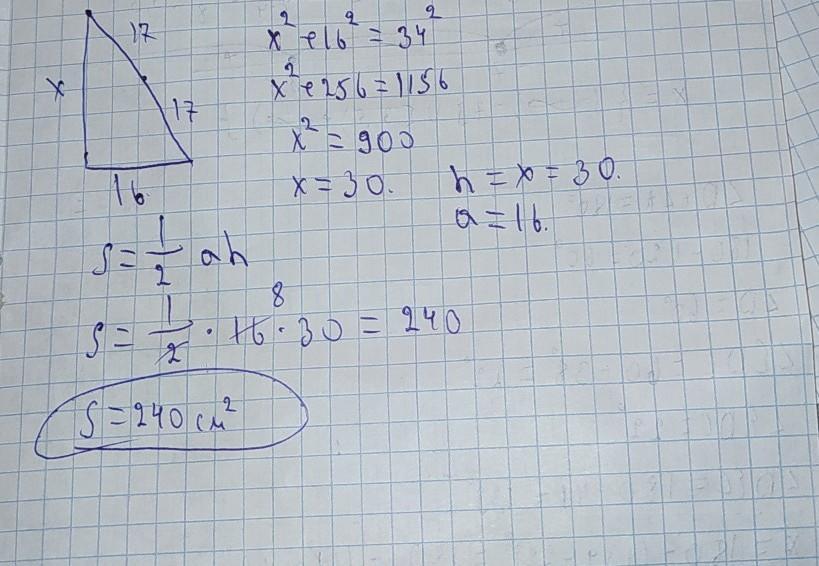 17
x² + 16² = 34²
x
17
x² + 256 = 1156
x² = 900
16
x = 30.
h = x = 30.
a = 16.
S = 1/2 ah
8
S = 1/2 · 16 · 30 = 240
S = 240 см²